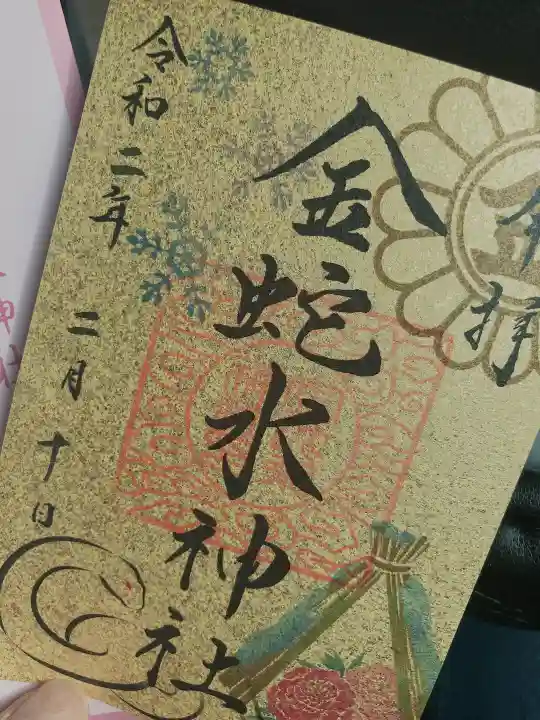 奉拝
金蛇水神社
令和二年
二月十日
神社